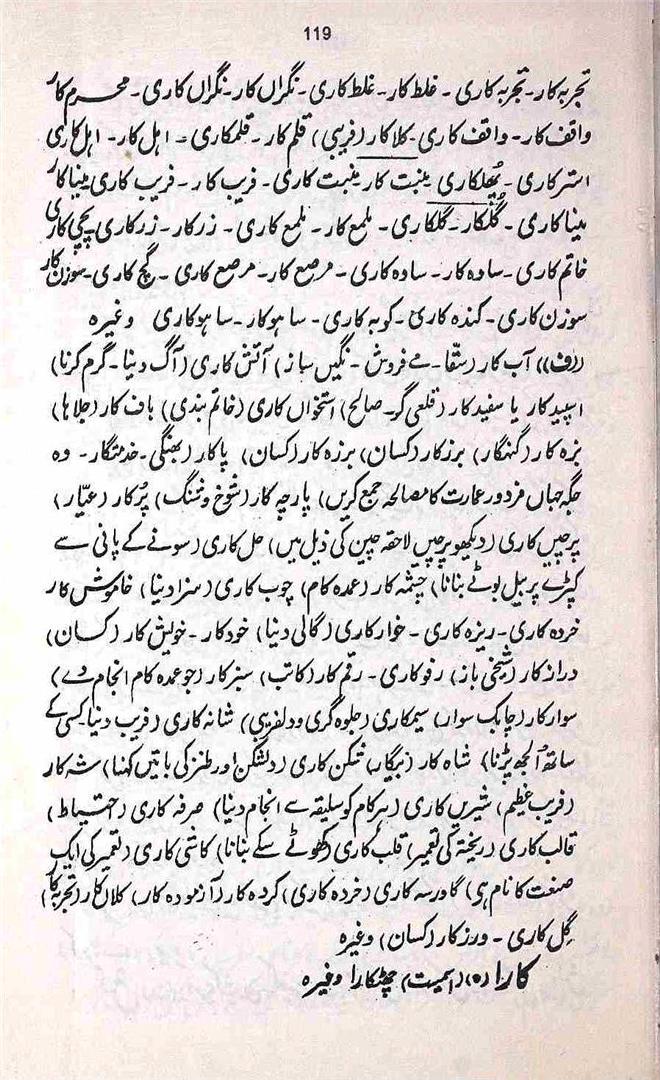 119
تجربہ کار۔ تجربہ کاری ۔ غلط کار۔ غلط کاری ۔ نگراں کار۔ نگراں کاری ۔ محرم کار
واقف کار۔ واقف کاری ۔ کلا کار (فریبی) قلم کار ۔ قلمکاری ۔ اہل کار ۔ اہل کاری
استرکاری ۔ پُھلکاری منبت کار منبت کاری ۔ فریب کار ۔ فریب کاری مینا کار
مینا کاری ۔ گُلکار ۔ گلکاری ۔ ملمع کار ۔ ملمع کاری ۔ زرکار ۔ زرکاری پچی کاری
خاتم کاری ۔ سادہ کار ۔ سادہ کاری ۔ مرصع کار ۔ مرصع کاری ۔ گچ کاری ۔ سوزن کار
سوزن کاری ۔ کندہ کاری ۔ کوبہ کاری ۔ ساہو کار ۔ ساہو کاری وغیرہ
(ف)) آب کار (سقّا ۔ مے فروش ۔ نگیں ساز) آتش کاری (آگ دینا ۔ گرم کرنا)
اسپید کار یا سفید کار (قلعی گر ۔ صالح) استخواں کاری (خاتم بندی) باف کار (جلاہا)
بزہ کار (گنہگار) برزکار (کسان) برزہ کار (کسان) پاکار (بھنگی ۔ خدمتگار ۔ وہ
جگہ جہاں مزدور عمارت کا مصالحہ جمع کریں) پارچہ کار (شوخ و شنگ) پُرکار (عیّار)
پرچیں کاری (دیکھو پرچیں لاحقہ چین کی ذیل میں) حل کاری (سونے کے پانی سے
کپڑے پر بیل بوٹے بنانا) چشمہ کار (عمدہ کام) چوب کاری (سزا دینا) خاموش کار
خردہ کاری ۔ ریزہ کاری ۔ خوار کاری (گالی دینا) خود کار ۔ خویش کار (کسان)
دراز کار (شیخی باز) رفو کاری ۔ رقم کار (کاتب) سبز کار (جو عمدہ کام انجام دے)
سوار کار (چابک سوار) سیمکاری (جلوہ گری و دلفریبی) شانہ کاری (فریب دینا کسی کے
ساتھ اُلجھ پڑنا) شاہ کار (بیگار) شکن کاری (دلشکن اور طنز کی باتیں کہنا) شہ کار
(فریب عظیم) شیریں کاری (ہر کام کو سلیقہ سے انجام دینا) صرفہ کاری (احتیاط)
قالب کاری (ریختہ کی تعمیر) قلب کاری (کھوٹے سکے بنانا) کاشی کاری (تعمیر کی ایک
صنعت کا نام ہی) گاورسہ کاری (خردہ کاری) کردہ کار (آزمودہ کار) کلان کار (تجربہ کار)
گِل کاری ۔ ورزکار (کسان) وغیرہ
کارا (ہ) (اسمیت) چھٹکارا وغیرہ